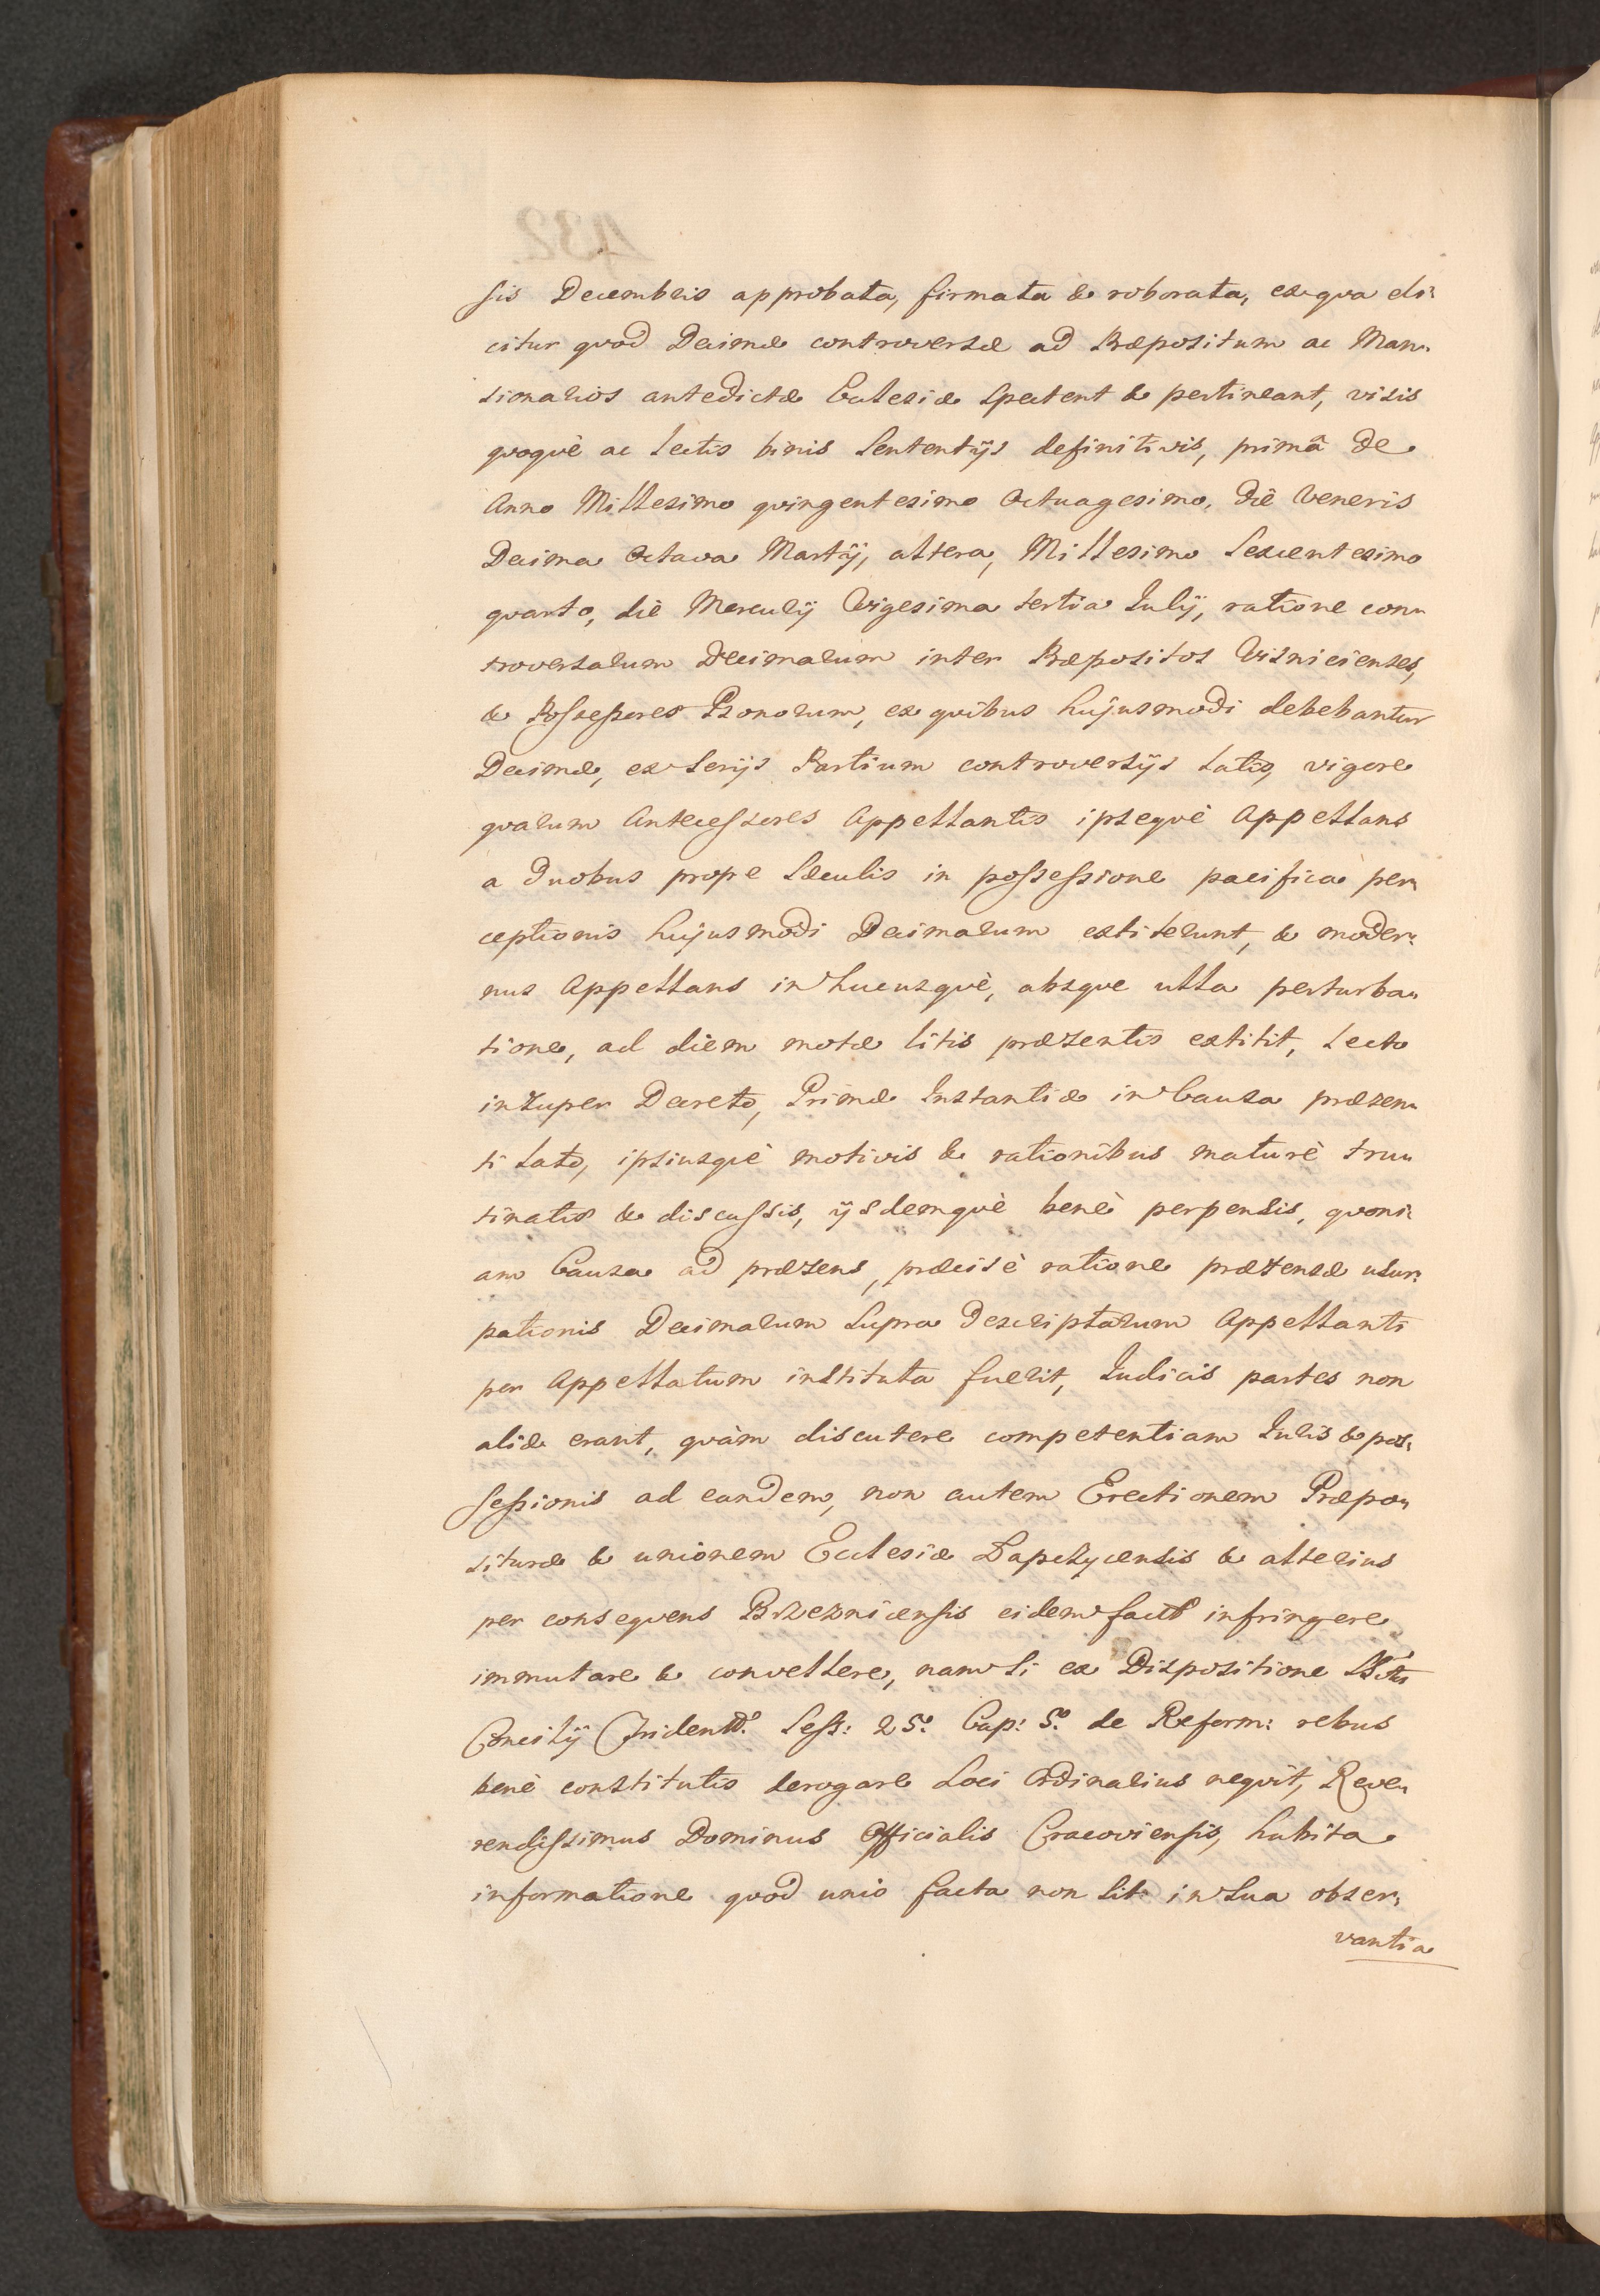 sis Decembris approbata, firmata & roborata, ex qua di-
citur quod Decimæ controversæ ad Præpositum ac Man-
sionarios antedictæ Ecclesiæ spectent & pertineant, visis
quoquè ac Lectis binis Sententÿs definitivis, primâ de
Anno Millesimo quingentesimo Octuagesimo, diê Veneris
Decima Octava Martÿ, altera, Millesimo Sexcentesimo
quarto, diè Mercurÿ Vigesima tertia Julÿ, ratione con-
troversarum Decimarum inter Præpositos Visnicienses,
& Possessores Bonorum, ex quibus hujusmodi debebantur
Decimæ, ex Serÿs Partium controversÿs Latis, vigore
quarum Antecessores Appellantis ipsequè Appellans
a duobus prope Sæculis in possessione pacifica per-
ceptionis hujusmodi Decimarum extiterunt, & moder-
nus Appellans in hucusquè, absque ulla perturba-
tione, ad diem motæ litis præsentis extitit, Lecto
insuper Decreto, Primæ Instantiæ in Causa præsen-
ti Lato, ipsiusquè motivis & rationibus maturè tru-
tinatis & discussis, ÿsdemquè benè perpensis, quoni-
am Causa ad præsens, præcisè ratione prætensæ usur-
pationis Decimarum Supra descriptarum Appellanti
per Appellatum instituta fuerit, Judicis partes non
aliæ erant, quàm discutere competentiam Juris & pos-
sessionis ad eandem, non autem Erectionem Præpo-
situræ & unionem Ecclesiæ Łapczycensis & alterius
per consequens Brzeznicensis eidem fact infringere
immutare & convellere, nam si ex Dispositione
Concilÿ Trident. Sess: 25. Cap: 5. de Reform: rebus
benè constitutis derogare Loci Ordinarius nequit, Reve-
rendissimus Dominus Officialis Cracoviensis, habita
informatione quod unio facta non sit in sua obser-
vantia